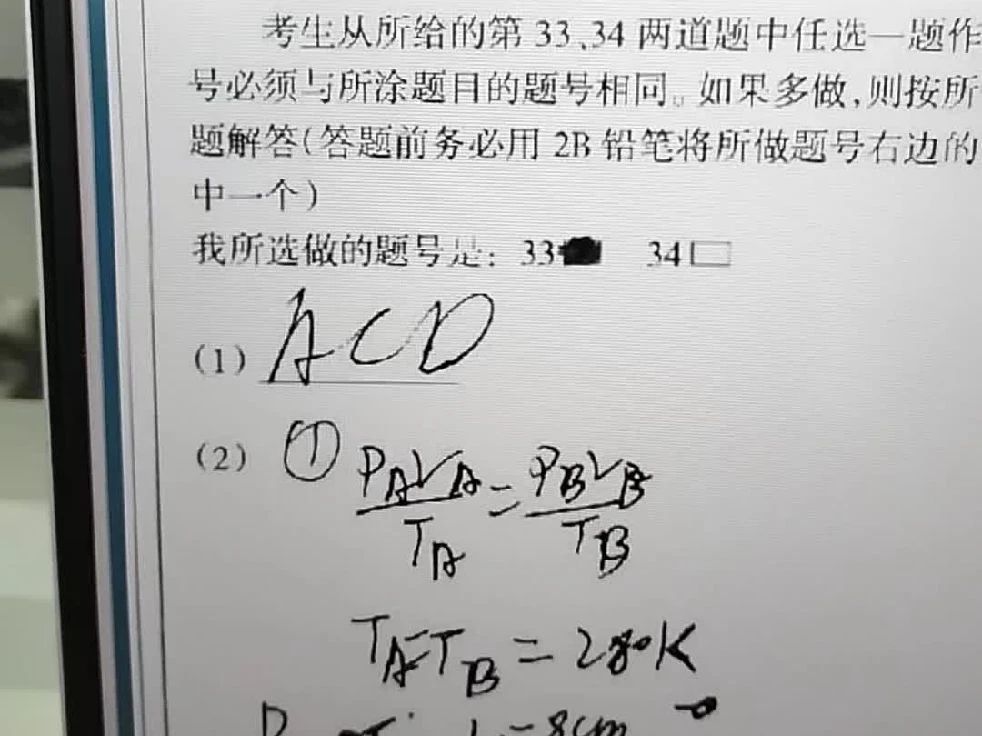 考生从所给的第 33、34 两道题中任选一题作
号必须与所涂题目的题号相同。如果多做,则按所
题解答(答题前务必用 2B 铅笔将所做题号右边的
中一个)
我所选做的题号是: 33 34
(1) ACD
(2) ① P_A V_A / T_A = P_B V_B / T_B
T_A = T_B = 280K
= 8cm